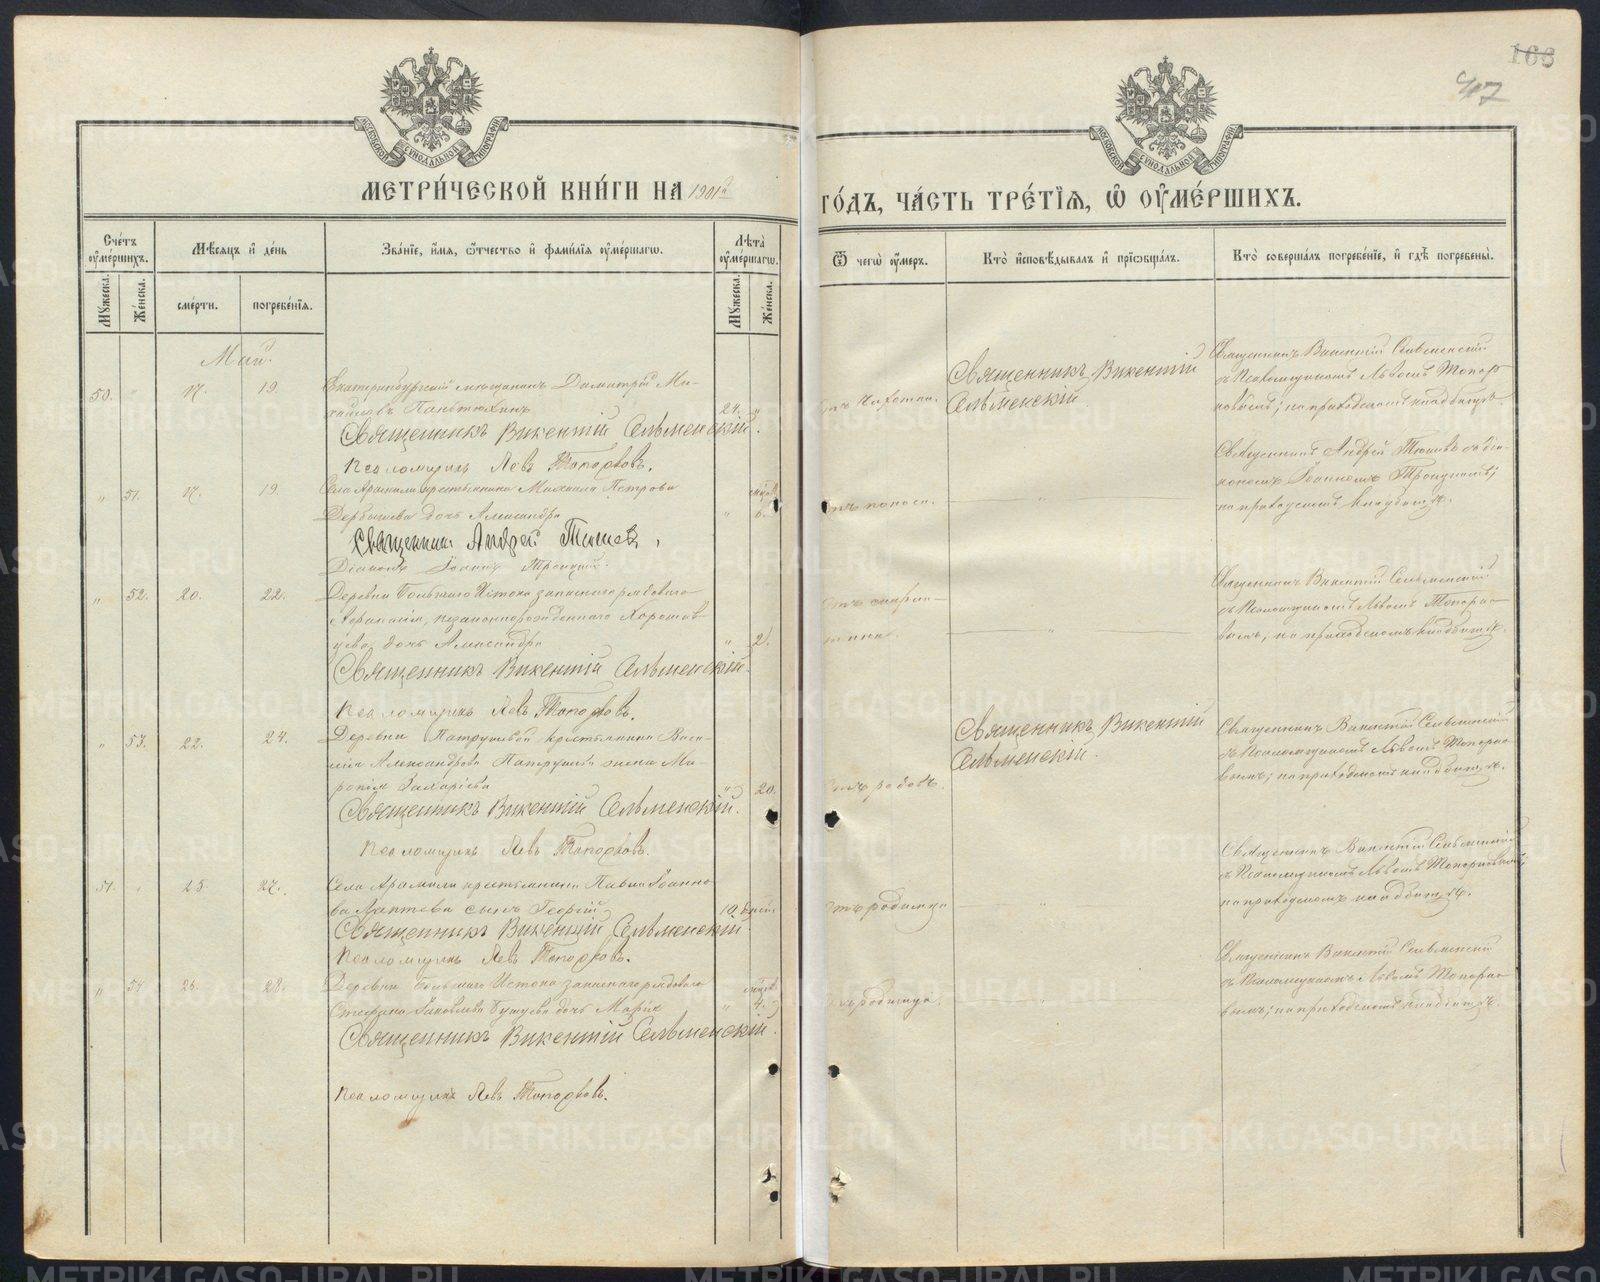 166
47
МОСКОВСКОЙ СУНОДАЛЬНОЙ ТИПОГРАФІИ
МОСКОВСКОЙ СУНОДАЛЬНОЙ ТИПОГРАФІИ
МЕТРИ́ЧЕСКОЙ КНИ́ГИ НА 1901й
ГО́ДЪ, ЧА́СТЬ ТРЕ́ТІѦ, Ѡ ОУМЕ́РШИХЪ.
Сче́тъ оуме́ршихъ.
Мѣ́сѧцъ и де́нь
Зва́ніе, и́мѧ, ѻ҆́тчество и фами́ліѧ оуме́ршагѡ.
Лѣта̀ оуме́ршагѡ.
Ѿ чегѡ̀ оу́меръ.
Кто̀ исповѣ́дывалъ и пріѡбща́лъ.
Кто̀ соверша́лъ погребе́ніе, и гдѣ̀ погребены̀.
Мꙋ́жеска. Же́нска. сме́рти. погребе́ніѧ. Мꙋ́жеска. Же́нска.
Май.
50. " 17. 19. Екатеринбургскій мѣщанинъ Димитрій Ми-
хайловъ Паньтюхинъ 24. " отъ чахотки.
Священникъ Викентій Сельменскій.
Псаломщикъ Левъ Топорковъ.
Священникъ Викентій
Сельменскій.
Священникъ Викентій Сельменскій
съ Псаломщикомъ Львомъ Топор
ковымъ; на приходскомъ кладбищѣ.
" 51. 17. 19. Села Арамили крестьянина Михаила Петрова
дочь Александра " 6. отъ поноса. "
Священникъ Андрей
Діаконъ Іоаннъ Троицкій.
Священникъ Андрей съ діа-
кономъ Іоанномъ Троицкимъ;
на приходскомъ кладбищѣ.
" 52. 20. 22. Деревни Большаго Истока запаснаго рядоваго
незаконнорожденнаго
дочь Александра " 2. отъ скарла-
тины. "
Священникъ Викентій Сельменскій.
Псаломщикъ Левъ Топорковъ.
Священникъ Викентій Сельменскій
съ Псаломщикомъ Львомъ Топорко-
вымъ; на приходскомъ кладбищѣ.
" 53. 22. 24. Деревни Патрушевой крестьянина Васи-
лія Александрова Патрушева жена Ма-
Захаріева " 20. отъ родовъ.
Священникъ Викентій Сельменскій.
Псаломщикъ Левъ Топорковъ.
Священникъ Викентій
Сельменскій.
Священникъ Викентій Сельменскій
съ Псаломщикомъ Львомъ Топорко-
вымъ; на приходскомъ кладбищѣ.
51. " 25. 27. Села Арамили крестьянина Павла Іоанно-
ва Лаптева сынъ Георгій 10 дней отъ родимца
Священникъ Викентій Сельменскій
Псаломщикъ Левъ Топорковъ.
Священникъ Викентій Сельменскій
съ Псаломщикомъ Львомъ Топорковымъ;
на приходскомъ кладбищѣ.
" 54. 26. 28. Деревни Большаго Истока запаснаго рядоваго
Стефана Яковлева дочь Марія " 4. отъ родимца. "
Священникъ Викентій Сельменскій.
Псаломщикъ Левъ Топорковъ.
Священникъ Викентій Сельменскій
съ Псаломщикомъ Львомъ Топорко-
вымъ; на приходскомъ кладбищѣ.
METRIKI.GASO-URAL.RU